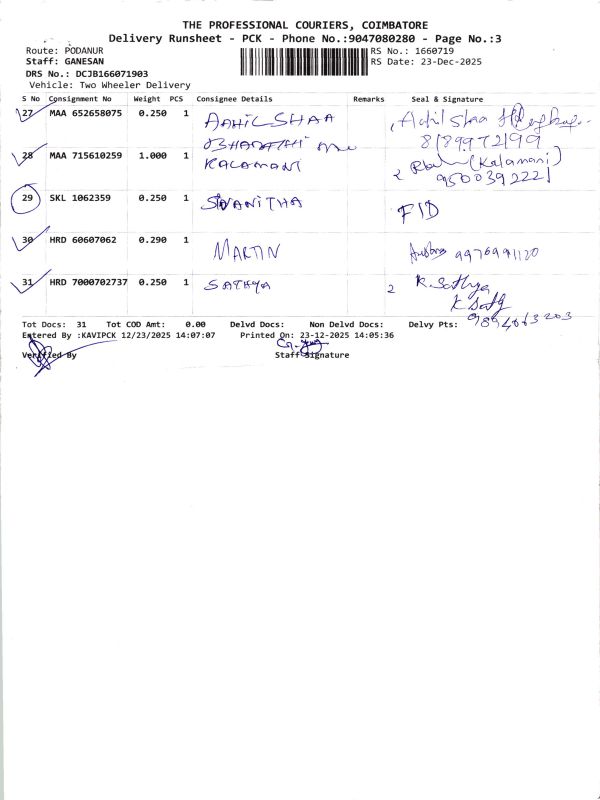 THE PROFESSIONAL COURIERS, COIMBATORE
Delivery Runsheet - PCK - Phone No.:9047080280 - Page No.:3
Route: PODANUR RS No.: 1660719
Staff: GANESAN RS Date: 23-Dec-2025
DRS No.: DCJB166071903
Vehicle: Two Wheeler Delivery
S No Consignment No Weight PCS Consignee Details Remarks Seal & Signature
27 MAA 652658075 0.250 1 AAHIL SHAA Aahil Shaa
8189972199
28 MAA 715610259 1.000 1 BHARATHI
KALAMANI 2 (Kalamani)
9500392221
29 SKL 1062359 0.250 1 SWANITHA FID
30 HRD 60607062 0.290 1 MARTIN 9976991120
31 HRD 7000702737 0.250 1 SATHYA 2 K. Sathya
9894063203
Tot Docs: 31 Tot COD Amt: 0.00 Delvd Docs: Non Delvd Docs: Delvy Pts:
Entered By :KAVIPCK 12/23/2025 14:07:07 Printed On: 23-12-2025 14:05:36
Verified By Staff Signature